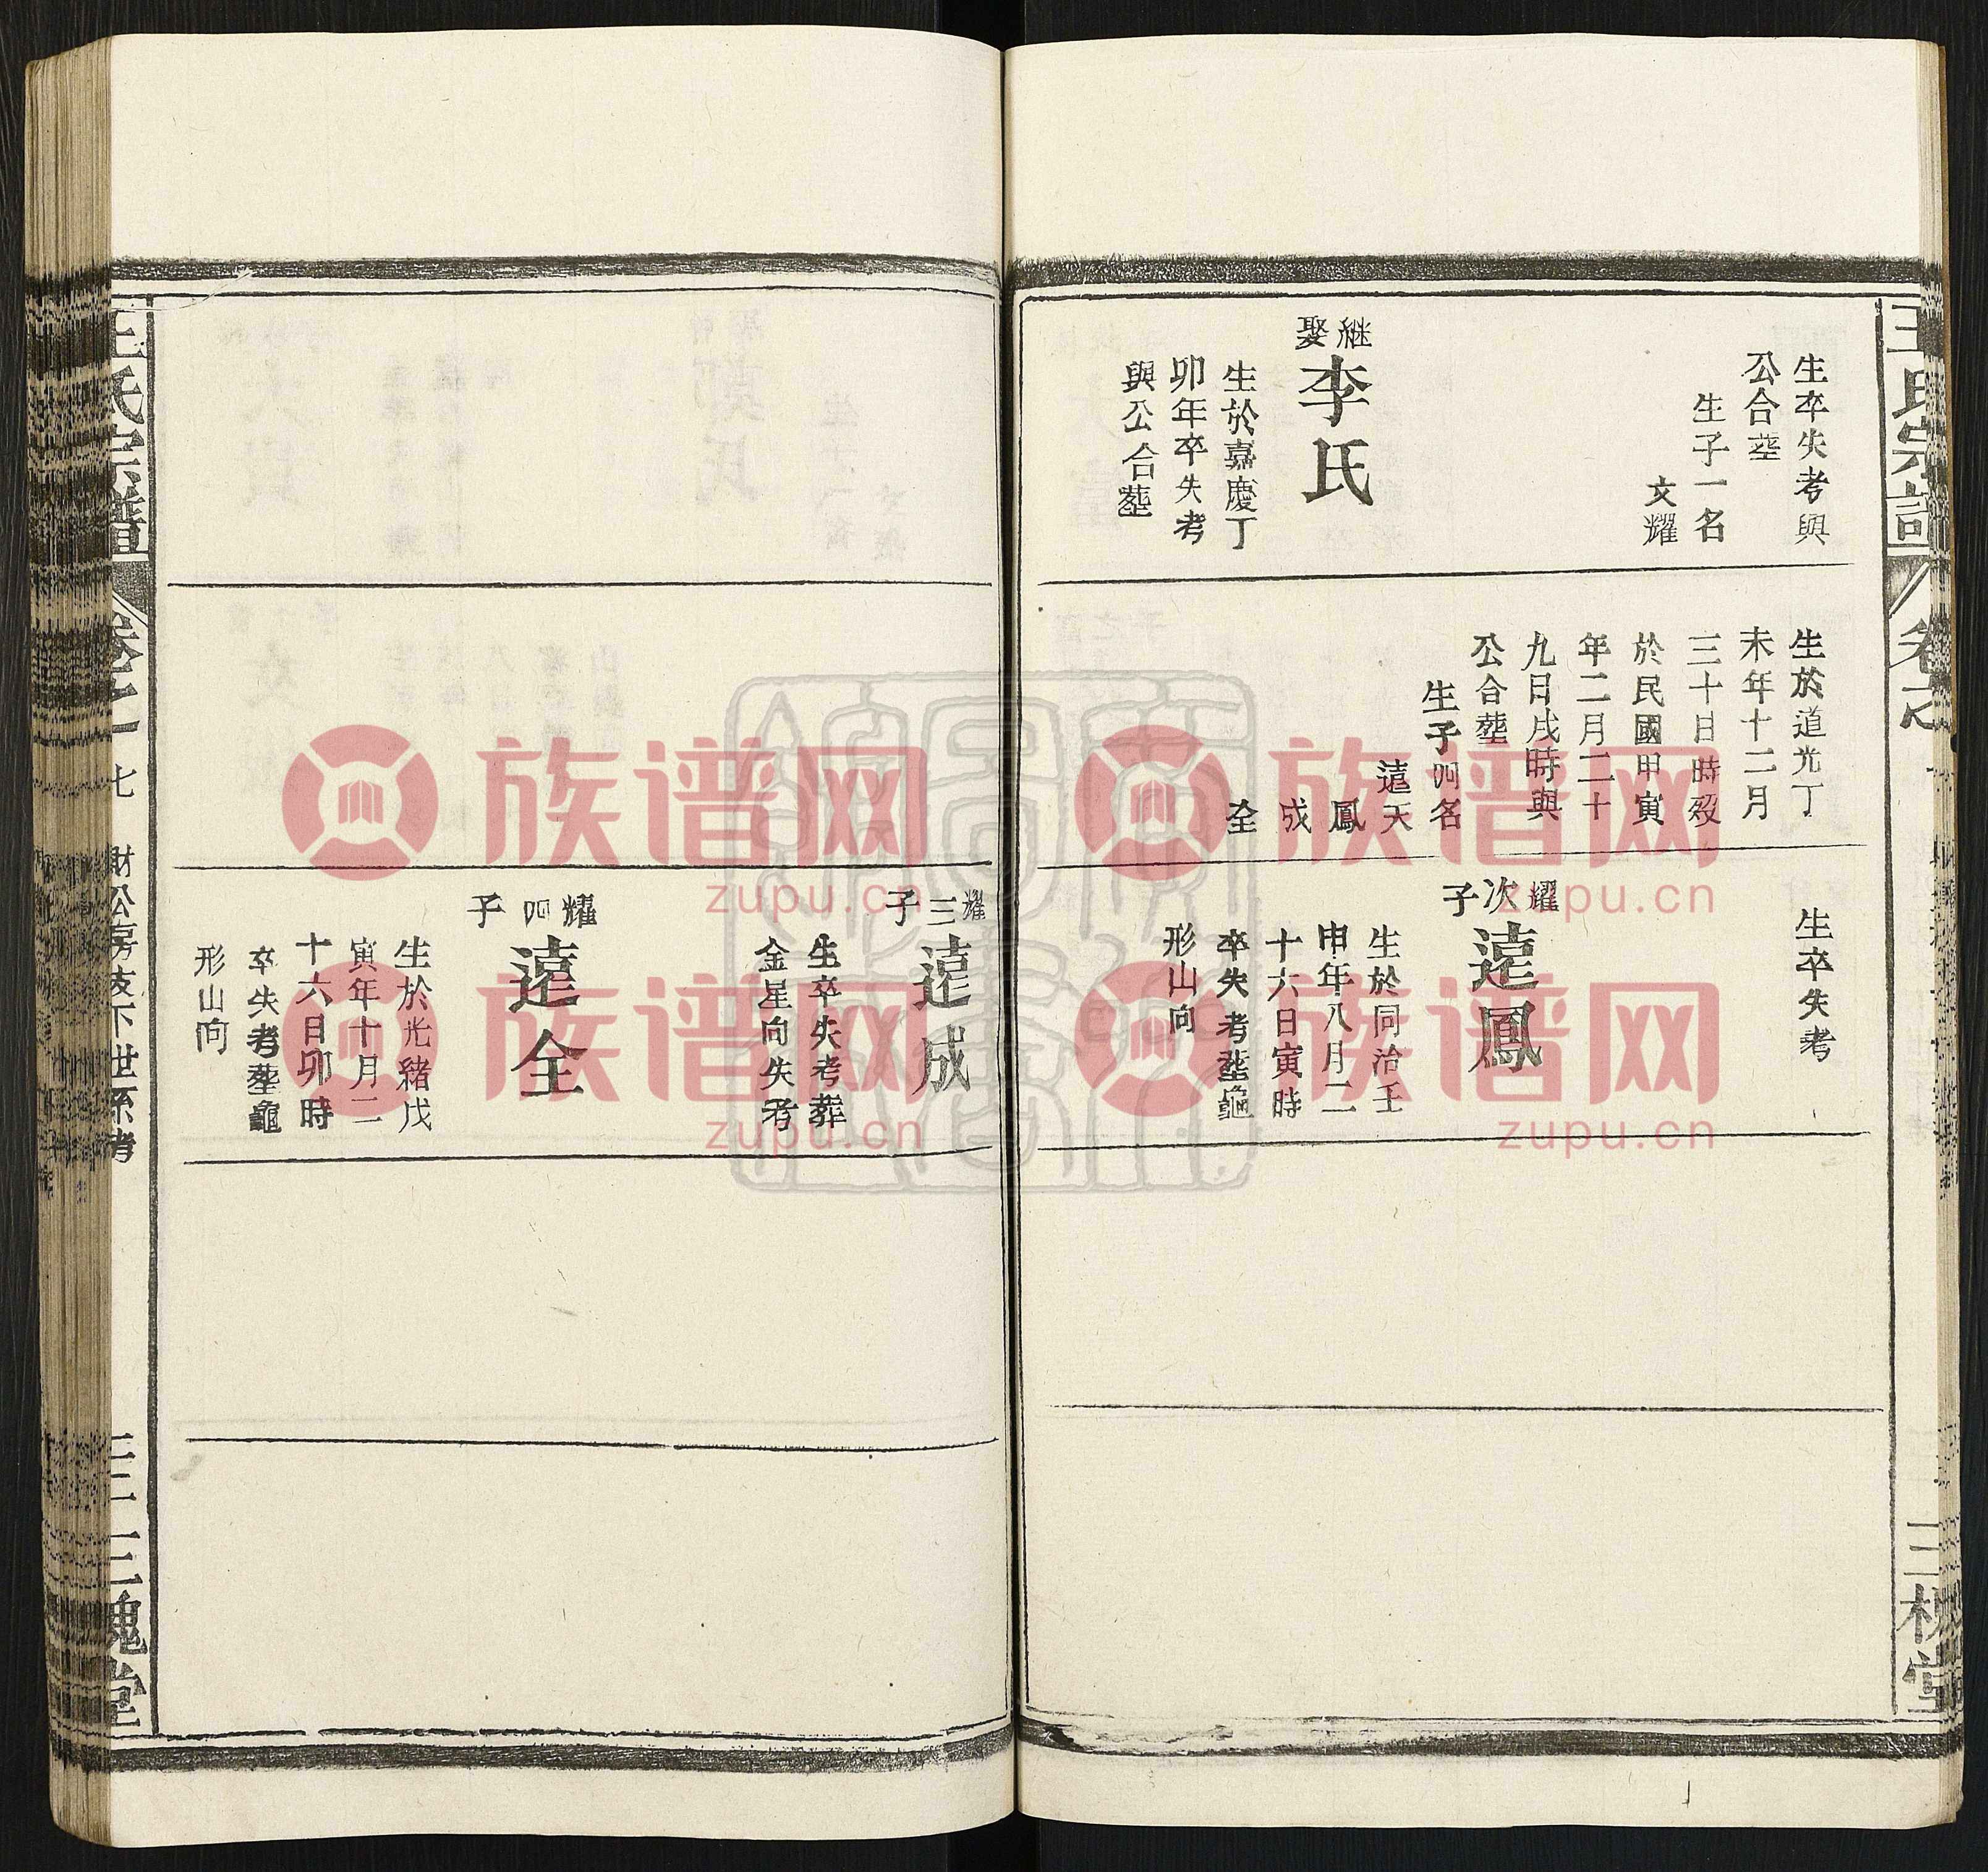 生卒失考與
公合塟
生子一名
文耀
継
娶
李氏
生於嘉慶丁
卯年卒失考
與公合塟
生於道光丁
未年十二月
三十日時歿
於民國甲寅
年二月二十
九日戌時與
公合塟
生子四名
遠天
鳳
成
全
生卒失考
耀
次
子
遠鳳
生於同治壬
申年八月二
十六日寅時
卒失考塟龜
形山向
三槐堂
耀
三
子
遠成
生卒失考葬
金星向失考
耀
四
子
遠全
生於光緒戊
寅年十月二
十六日卯時
卒失考塟龜
形山向
王氏宗譜
卷之一
七
財公房攴下世系考
三槐堂
族谱网
zupu.cn
族谱网
zupu.cn
族谱网
zupu.cn
族谱网
zupu.cn